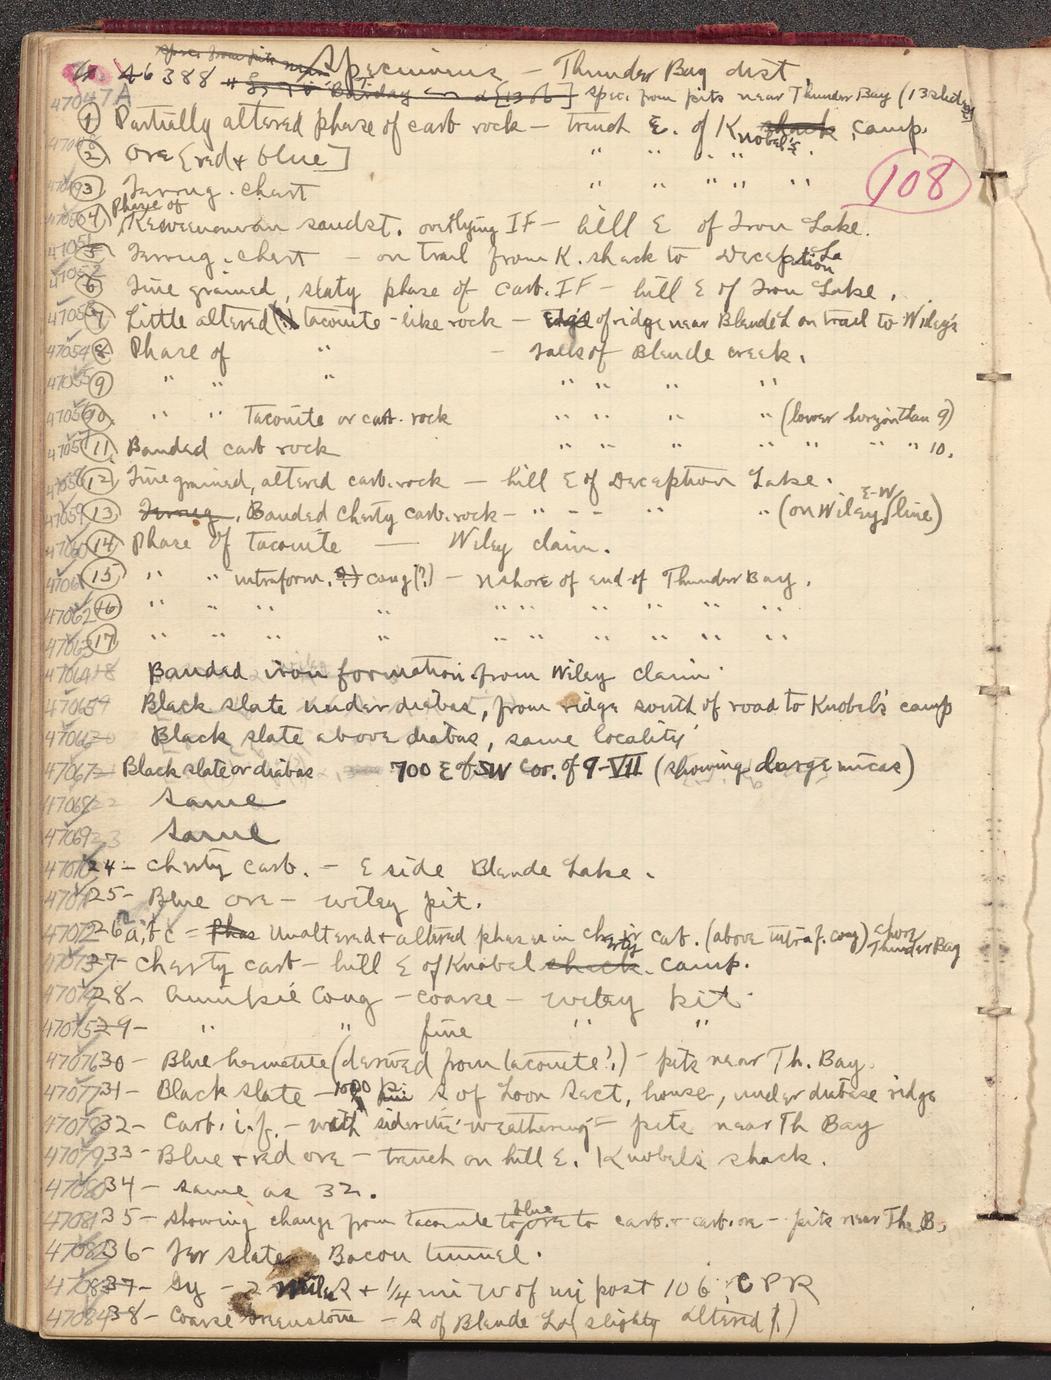 Specimens – Thunder Bay dist.
46388 spec. from pits near Thunder Bay (13 slides)
47047A
① Partially altered phase of carb rock – trench E. of Knobel's shack camp.
② Ore [red + blue] " " " " "
108
③ Ferrug. chert " " " " "
④ Phase of Keweenawan sandst. overlying IF – hill E of Iron Lake.
⑤ Ferrug. chert – on trail from K. shack to Deception La
⑥ Fine grained, slaty phase of carb. IF – hill E of Iron Lake.
⑦ Little altered taconite-like rock – Edge of ridge near Blende L on trail to Wiley's
47054 ⑧ Phase of " – Falls of Blende creek.
47055 ⑨ " " " " " " "
47056 10. " " Taconite or carb. rock " " " " (lower horizon than 9)
47057 11. Banded carb rock " " " " " " " 10.
47058 12 Fine grained, altered carb. rock – hill E of Deception Lake.
47059 13 Ferrug. Banded Cherty carb. rock – " – – " " (on Wiley E-W line)
47060 14 Phase of taconite — Wiley claim.
47061 15 " " intraform. cong (?) – N shore of end of Thunder Bay.
47062 16 " " " " " " " " " " "
47063 17 " " " " " " " " " " "
47064 18 Banded iron formation from Wiley claim
47065 19 Black slate under diabas, from ridge south of road to Knobel's camp
47066 20 Black slate above diabas, same locality
47067 – Black slate or diabas 700 E of SW Cor. of 9-VII (showing large micas)
47068 22 Same
47069 23 Same
47070 24 – Cherty carb. – E side Blende Lake.
47071 25 – Blue ore – Wiley pit.
47072 26 a, b, c = Phas Unaltered + altered phases in cherty carb. (above intraf. cong) shore Thunder Bay
47073 27 – Cherty carb – hill E of Knobel shack camp.
47074 28 – Animikie Cong – coarse – Wiley pit.
47075 29 – " " fine " "
47076 30 – Blue hematite (derived from taconite?) – pits near Th. Bay.
47077 31 – Black slate – 1000 S of Loon Sect. house, under diabase ridge
47078 32 – Carb. i.f. – with siderite weathering – pits near Th Bay
47079 33 – Blue + red ore – trench on hill E. Knobels shack.
47080 34 – same as 32.
47081 35 – Showing change from taconite to blue ore to carb. + carb. ore – pits near Th. B.
47082 36 – Fer slate Bacon tunnel.
47083 37 – Gy – 2 miles S + ¼ mi W of mi post 106 CPR
47084 38 – Coarse greenstone – S of Blende La (slighty altered?)